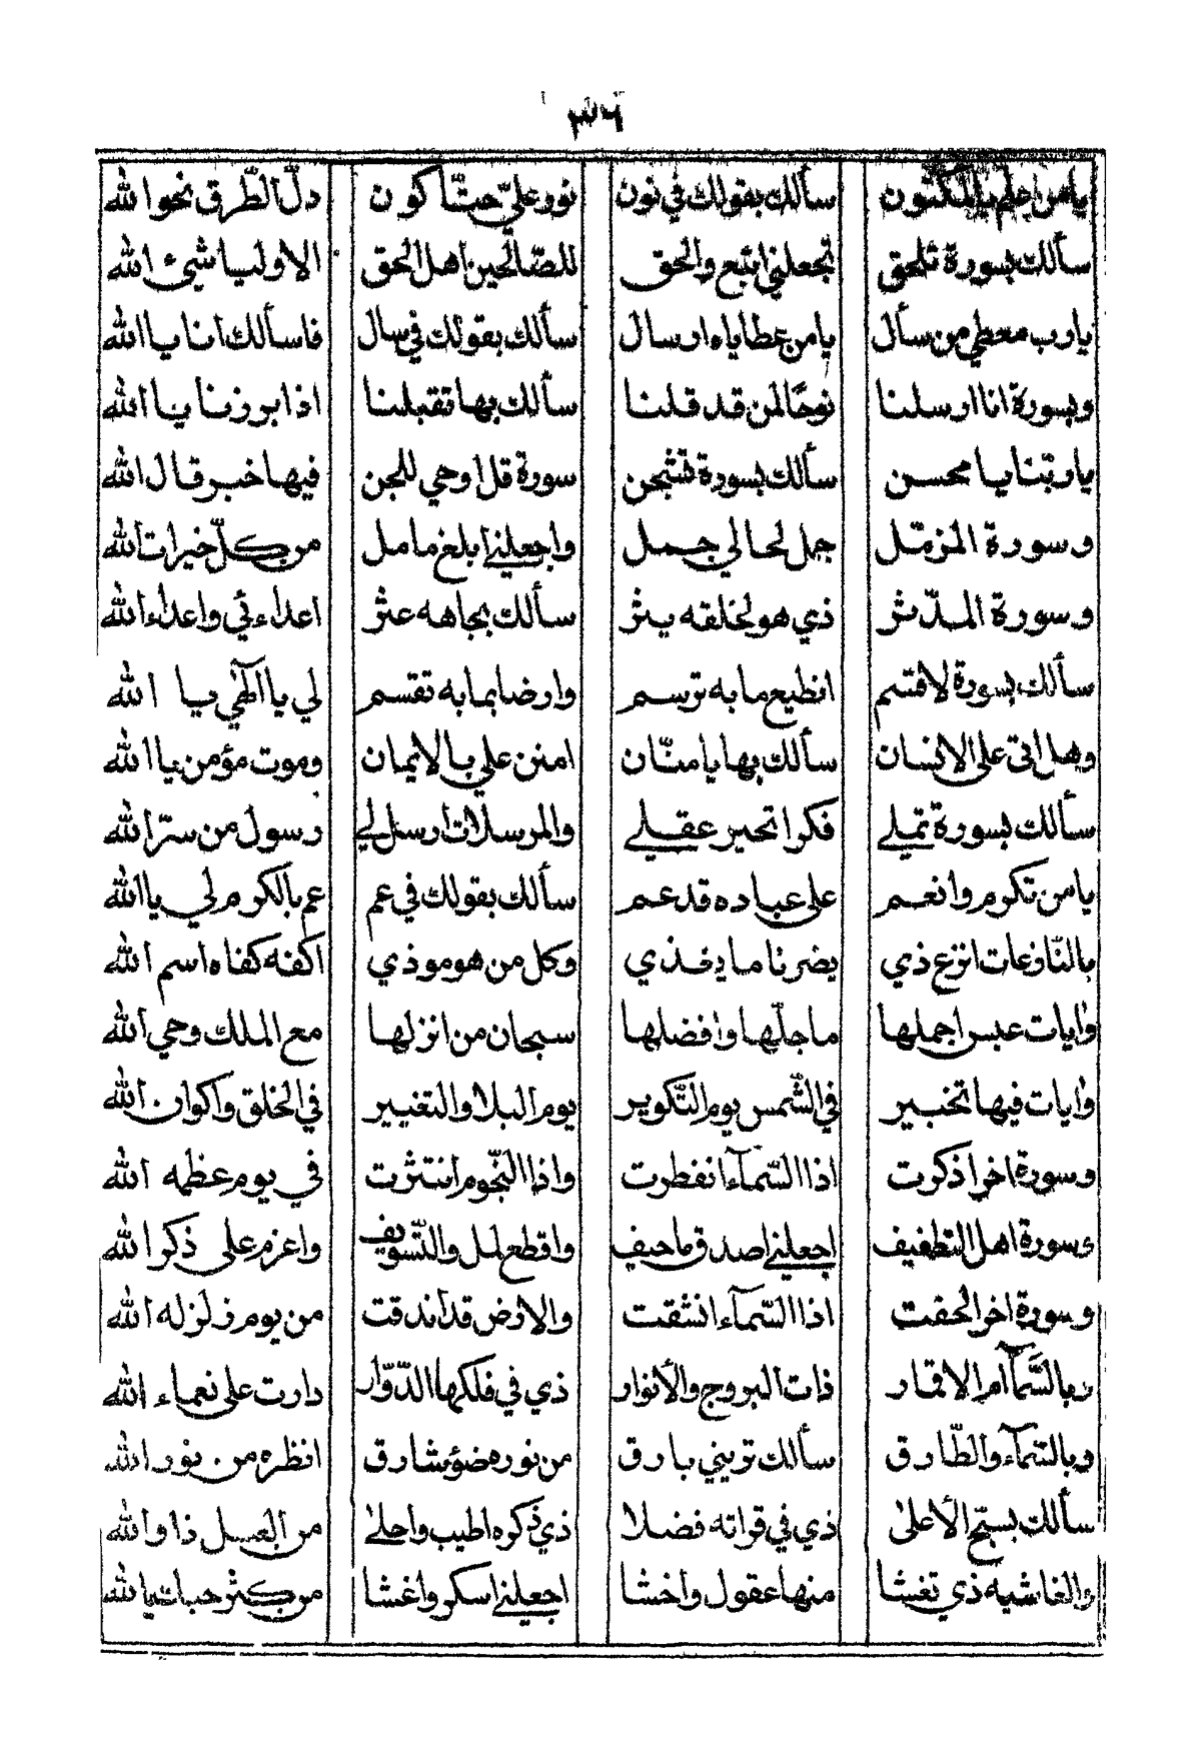 ٣٦
يا من اعلم بالمكنون سألك بقولك في نون نور عليّ حتّا كون دلّ الطّرق نحو الله
سألك بسورة تلحق تجعلني اتبع والحق للصّالحين اهل الحق الاوليا شيء الله
يا رب معطي من سأل يا من عطاياه ارسال سألك بقولك في سال فاسألك انا يا الله
وبسورة انا ارسلنا نوحًا لمن قد قلنا سألك بها تقبلنا اذا برزنا يا الله
يا ربّنا يا محسن سألك بسورة تشجن سورة قل اوحي للجن فيها خبر قال الله
وسورة المزمّل جمل لحالي جمل واجعلني ابلغ مامل من كلّ خيرات الله
وسورة المدّثر ذي هو لخلقه يثر سألك بجاهه عثر اعداءئي واعداء الله
سألك بسورة لا قسم انطيع ما به ترسم وارضا بما به تقسم لي يا آلهي يا الله
وهل اتى على الانسان سألك بها يا منّان امنن علي بالايمان وموت مؤمن يا الله
سألك بسورة تملي فكرا تحير عقلي والمرسلات ارسل لي رسول من سرّ الله
يا من تكرم وانعم على عباده قد عم سألك بقولك في عم عم بالكرم لي يا الله
بالنّازعات انزع ذي يضرنا ما يخذي وكل من هو موذي اكفه كفاه اسم الله
وايات عبس اجملها ما جلّها وافضلها سبحان من انزلها مع الملك وحي الله
وايات فيها تخبير في الشّمس يوم التّكوير يوم البلا والتغيير في الخلق واكوان الله
وسورة اخر اذكرت اذا السّمآء انفطرت واذا النّجوم انتثرت في يوم عظمه الله
وسورة اهل التطفيف اجعلني اصدق ما حيف واقطع لمل والتّسويف واعزم على ذكر الله
وسورة اخر الحقت اذا السّمآء انشقت والارض قد اندقت من يوم زلزله الله
وبالسّمآ ام الاقمار ذات البروج والأنوار ذي في فلكها الدّوّار دارت على نعماء الله
وبالسّمآء والطّارق سألك تريني بارق من نوره ضوؤ شارق انظره من نور الله
سألك بسبّح الأعلى ذي في قراته فضلا ذي ذكره اطيب واحلى من العسل ذا والله
والغاشيه ذي تغشا منها عقول واخشا اجعلني اسكر واغشا من كثر حبات يا الله